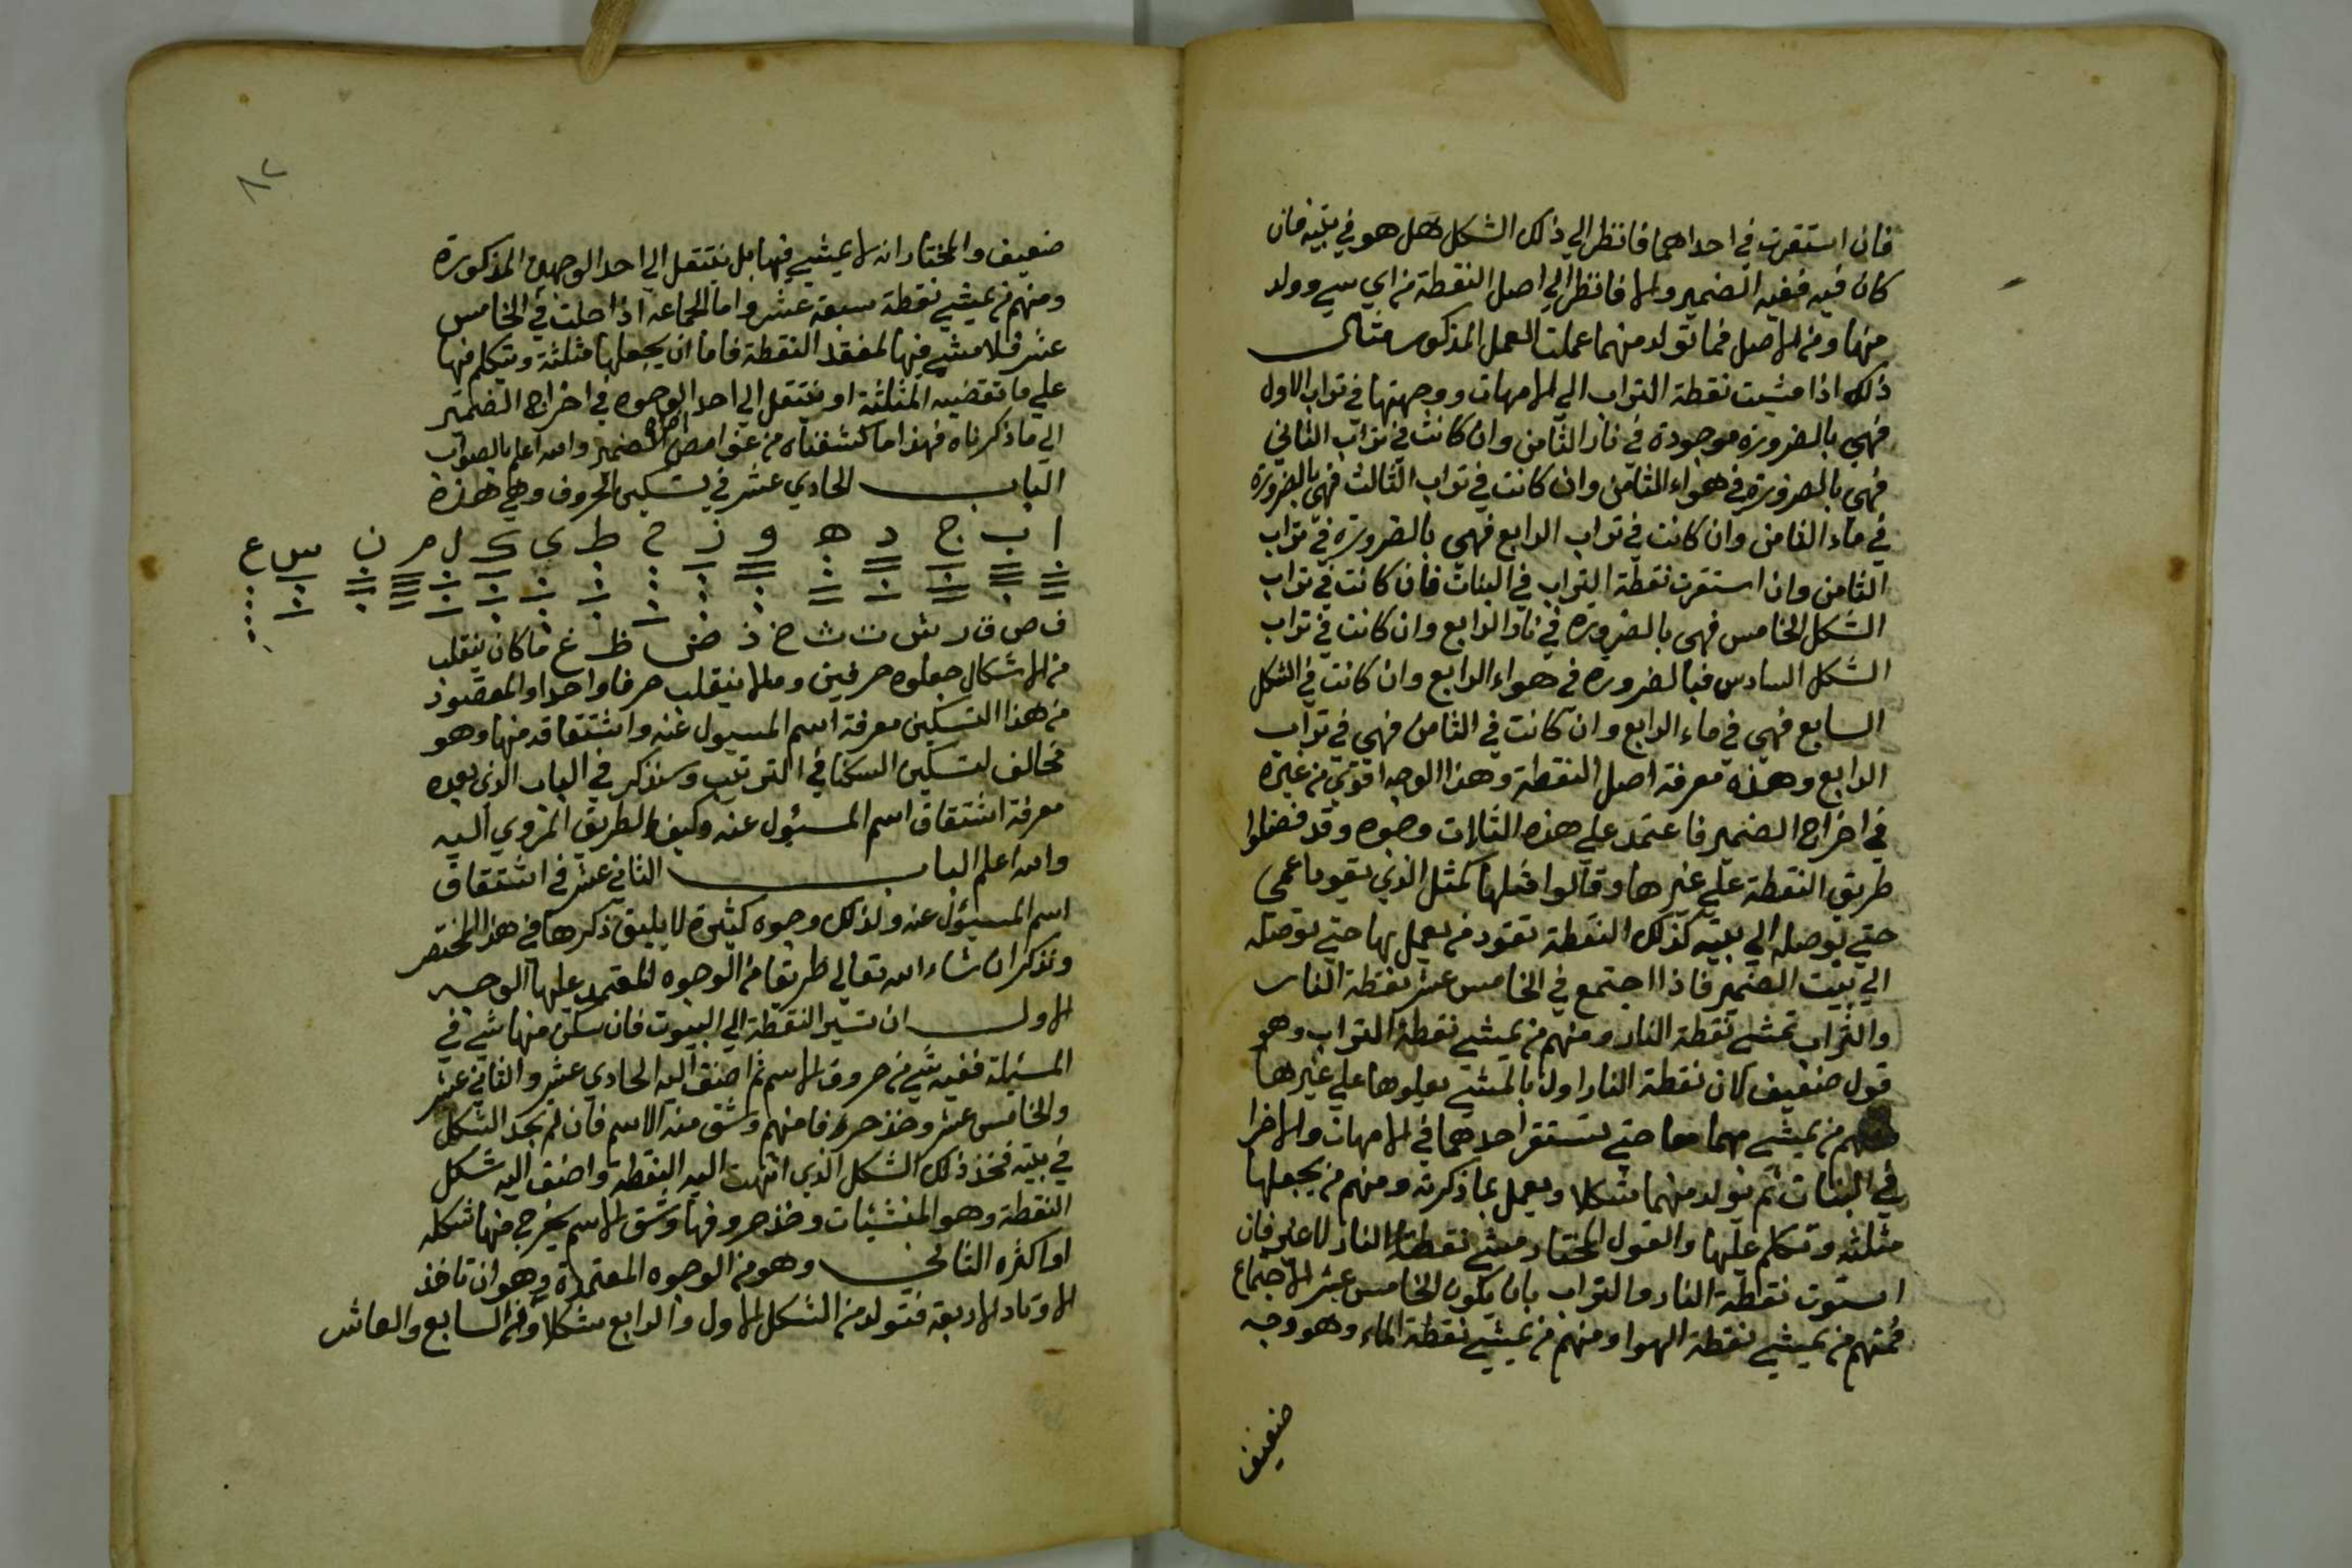 فان استقرت في احداهما فانظر الي ذلك الشكل فهل هو في بيته فان
كان فيه ففيه الضمير والا فانظر الي اصل النقطة من اي شي وولد
منها ومن الاصل فما تولد منهما عملت العمل المذكور مثال
ذلك اذا مشيت نقطة التراب الي الامهات ووجهتها في تراب الاول
فهي بالضرورة موجودة في نار الثامن وان كانت في تراب الثاني
فهي بالضرورة في هواء الثامن وان كانت في تراب الثالث فهي بالضرورة
في ماء الثامن وان كانت في تراب الرابع فهي بالضرورة في تراب
الثامن وان استقرت نقطة التراب في البنات فان كانت في تراب
الشكل الخامس فهي بالضرورة في نار الرابع وان كانت في تراب
الشكل السادس فبالضرورة في هواء الرابع وان كانت في الشكل
السابع فهي في ماء الرابع وان كانت في الثامن فهي في تراب
الرابع وهذه معرفة اصل النقطة وهذا الوجه اقوي من غيره
في اخراج الضمير فاعتمد علي هذه الثلاث وجوه وقد فضلوا
طريق النقطة علي غيرها وقالوا مثلها كمثل الذي يقود اعمي
حتي يوصله الي بيته كذلك النقطة تقود من يعمل بها حتي توصله
الي بيت الضمير فاذا اجتمع في الخامس عشر نقطة النار
والتراب تمشي نقطة النار ومنهم من يمشي نقطة التراب وهو
قول ضعيف لان نقطة النار اولي بالمشي لعلوها علي غيرها
ومنهم من يمشي معا حتي تستقر احدهما في الامهات والاخرا
في البنات ثم تولد منهما شكلا ويعمل بما ذكرته ومنهم من يجعلها
مثلثه وتكلم عليها والقول المختار مشي نقطة النار لا غير فان
استوت نقطة النار والتراب بان يكون الخامس عشر الاجتماع
فمنهم من يمشي نقطة الهوا ومنهم من يمشي نقطة الماء وهو وجه
ضعيف
٨٢
ضعيف والمختار انه لا يمشي فيها بل ينتقل الي احد الوجهين المذكورة
ومنهم من يمشي نقطة سبعة عشر واما الجماعه اذا حلت في الخامس
عشر فلا مشي فيها لفقد النقطة فاما ان يجعلها مثلثة ويتكلم فيها
علي ما تقتضيه المثلثة او ينتقل الي احد الوجوه في اخراج الضمير
الي ما ذكرناه فهذا ما كشفناه من غوامض اخراج الضمير والله اعلم بالصواب
الباب الحادي عشر في تسكين الحروف وهي هذة
ا ب ج د ه و ز ح ط ي ك ل م ن س ع
ف ص ق ر ش ت ث خ ذ ض ظ غ فما كان ينقلب
من الاشكال جعلوه حرفين وما لا ينقلب حرفا واحدا والمقصود
من هذا التسكين معرفة اسم المسيول عنه واشتقاقه منها وهو
مخالف لتسكين السكنا في الترتيب وسنذكر في الباب الذي بعده
معرفة اشتقاق اسم المسئول عنه وكيف الطريق المروي اليه
والله اعلم الباب الثاني عشر في اشتقاق
اسم المسئول عنه ولذلك وجوه كثيرة لا يليق ذكرها في هذا المختصر
ونذكر ان شاء الله تعالي طريقا من الوجوه المعتمد عليها الوجه
الاول ان تسير النقطة الي البيوت فان سكن منها شي في
المسئلة ففيه شي من حروف الاسم ثم اضف اليه الحادي عشر والثاني عشر
والخامس عشر وخذ حرفا منهم وشق منه الاسم فان لم تجد الشكل
في بيته فخذ ذلك الشكل الذي انتهت اليه النقطة واضف اليه شكل
النقطة وهو المنشئات وخذ حروفها وشق الاسم يخرج منها شكله
او اكثره الثاني وهو من الوجوه المعتمدة وهو ان تاخذ
الاوتاد الاربعة فتولد من الشكل الاول والرابع شكلا ومن السابع والعاشر